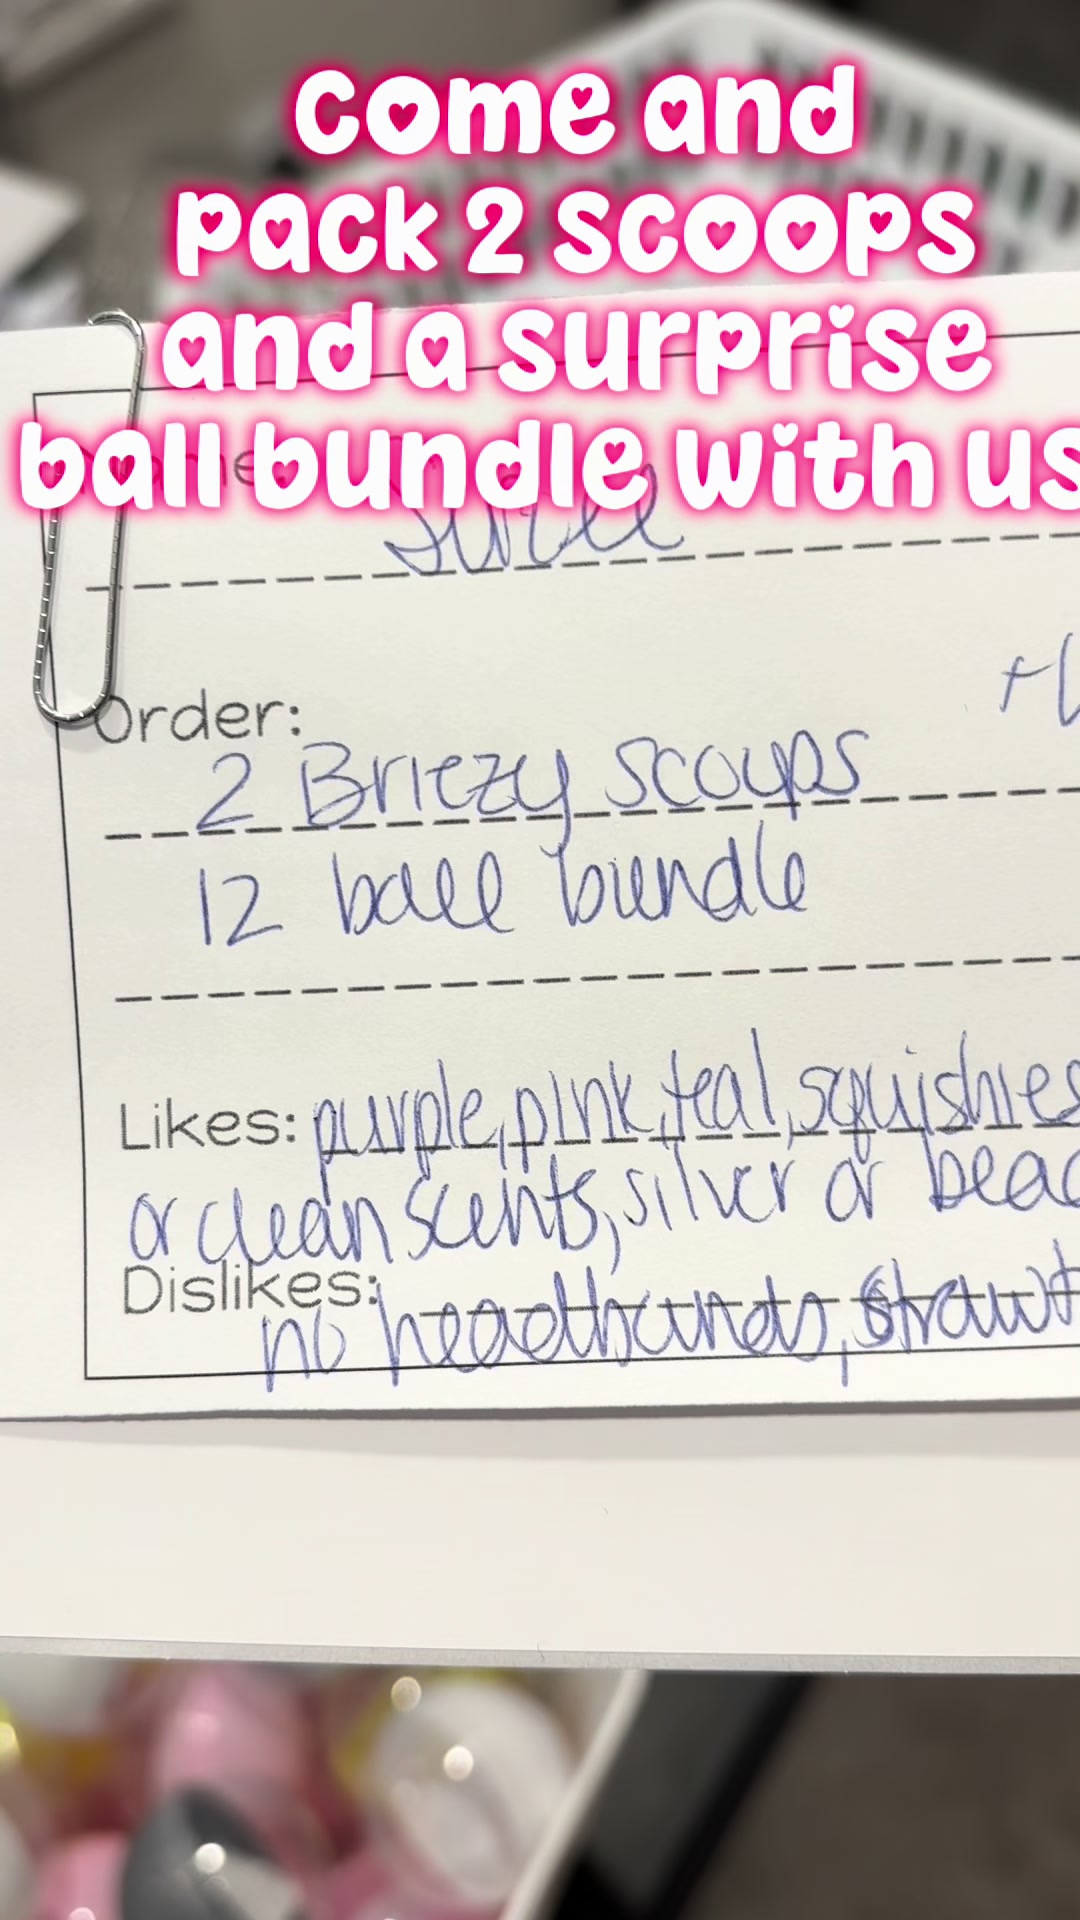 come and
pack 2 scoops
and a surprise
ball bundle with us
Order:
2 Briezy scoops
12 ball bundle
Likes: purple, pink, teal, squishies
or clean scents, silver or
Dislikes:
no headbands,